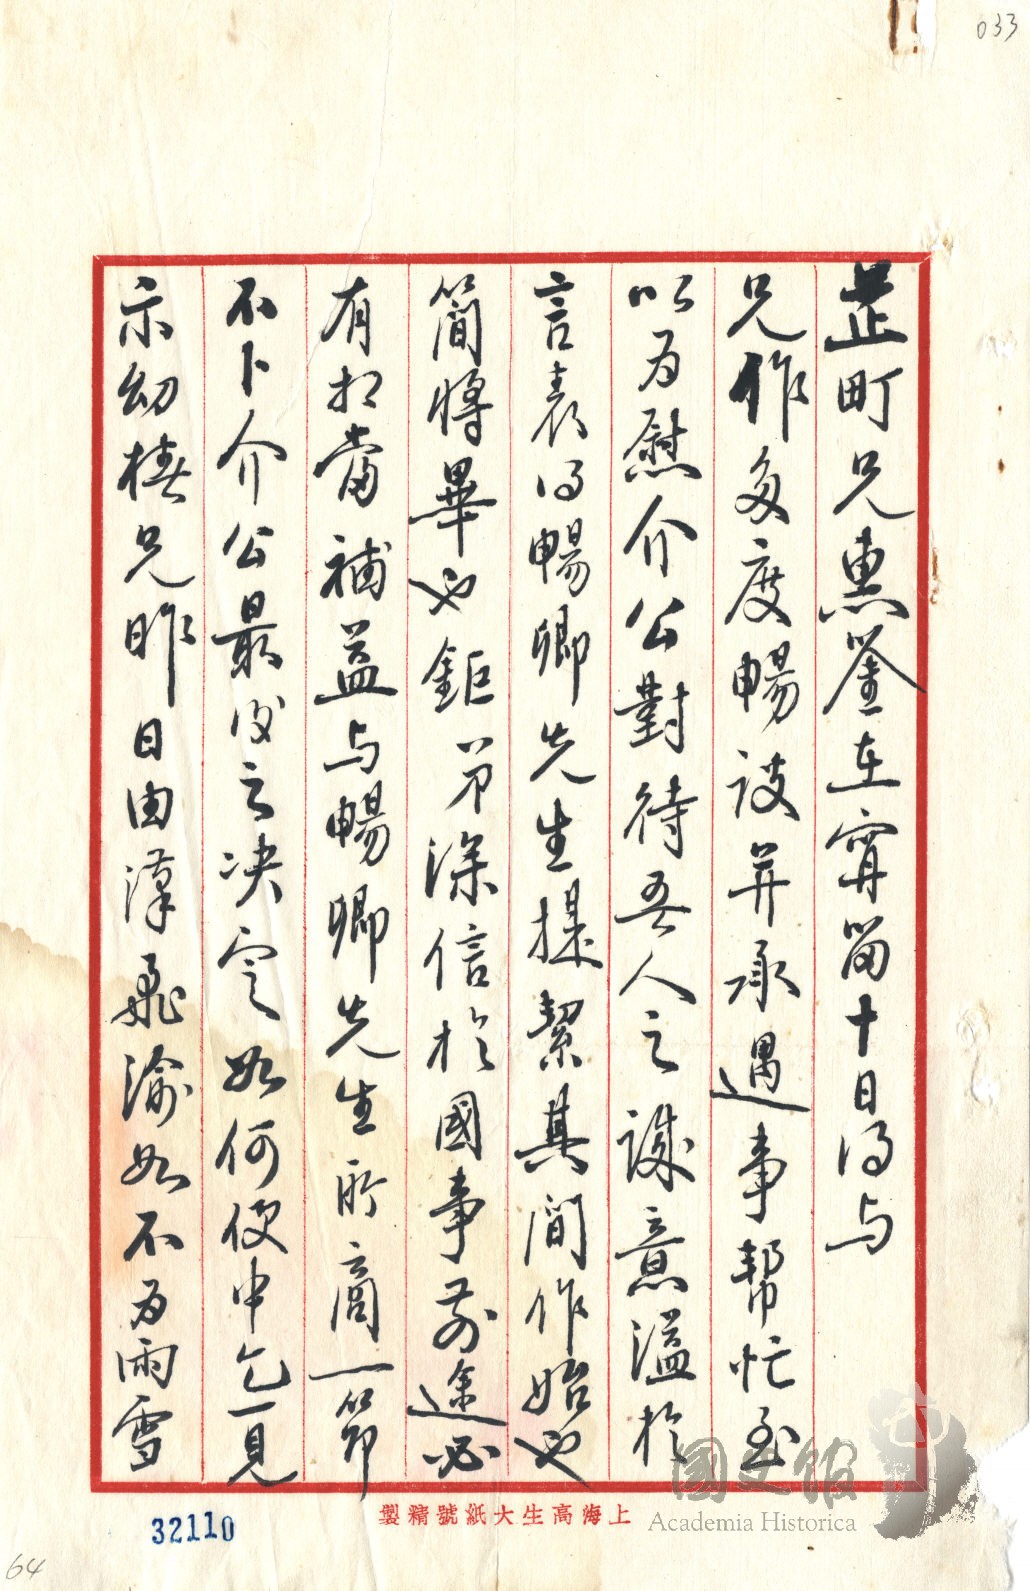 033
芷町兄惠鑒在寗留十日得与
兄作多度暢談并承遇事幫忙至
以为慰介公對待吾人之誠意溢於
言表得暢卿先生提絜其間作始也
簡將畢也鉅弟深信於國事前途必
有相當補益与暢卿先生所商一節
不卜介公最後之决定如何便中乞一見
示幼椿兄昨日由漢飛渝如不为雨雪
上海高生大紙號精製
國史館
Academia Historica
32110
64